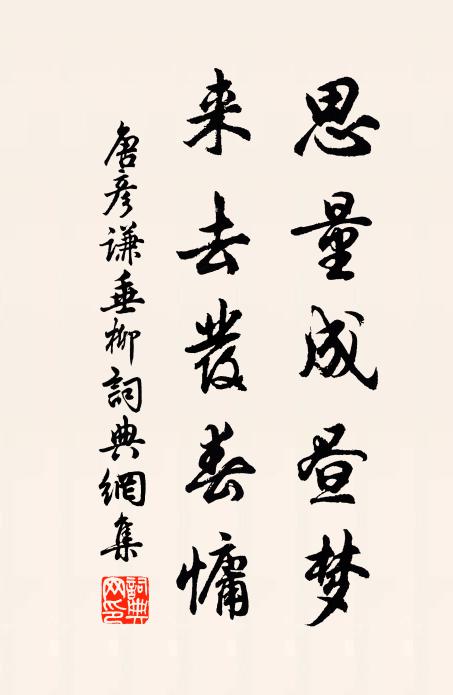 思量成昼梦
来去發春慵
唐彦谦垂柳詞典網集
詞典網印